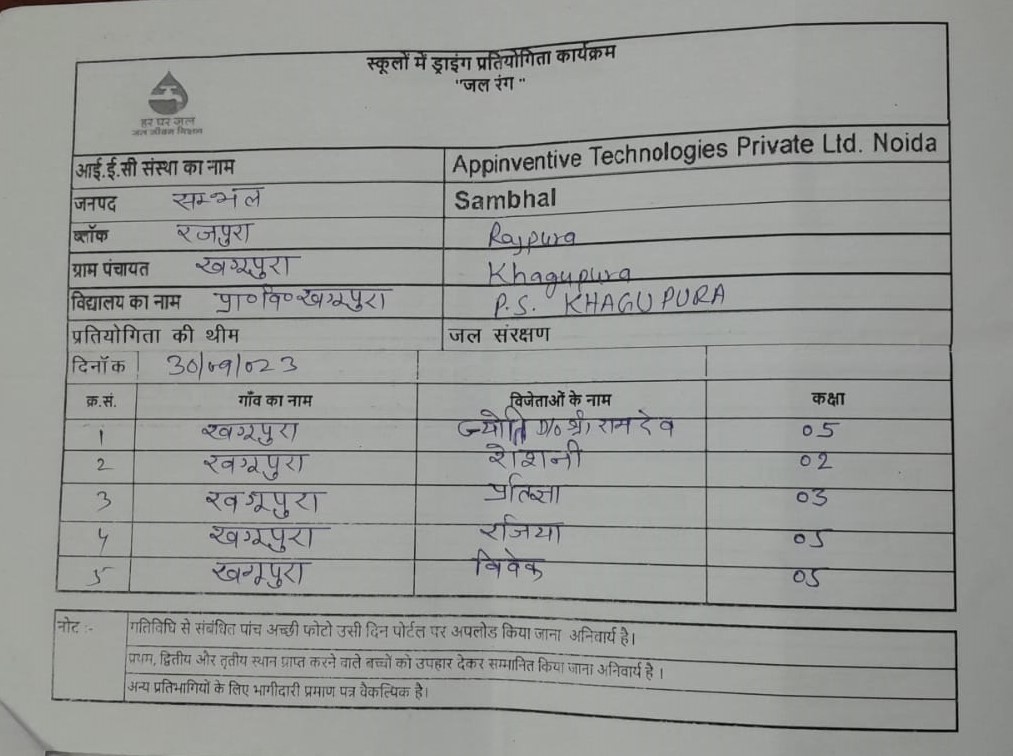 स्कूलों में ड्राइंग प्रतियोगिता कार्यक्रम
"जल रंग "
हर घर जल
जल जीवन मिशन
आई.ई.सी संस्था का नाम Appinventive Technologies Private Ltd. Noida
जनपद सम्भल Sambhal
ब्लॉक रजपुरा Rajpura
ग्राम पंचायत खगूपुरा Khagupura
विद्यालय का नाम प्रा०वि०खगूपुरा P.S. KHAGUPURA
प्रतियोगिता की थीम जल संरक्षण
दिनॉक 30/09/023
क्र.सं. गाँव का नाम विजेताओं के नाम कक्षा
1 खगूपुरा ज्योति D/o श्री रामदेव 05
2 खगूपुरा रोशनी 02
3 खगूपुरा 03
4 खगूपुरा रजिया 05
5 खगूपुरा विवेक 05
नोट :- गतिविधि से संबंधित पांच अच्छी फोटो उसी दिन पोर्टल पर अपलोड किया जाना अनिवार्य है।
प्रथम, द्वितीय और तृतीय स्थान प्राप्त करने वाले बच्चों को उपहार देकर सम्मानित किया जाना अनिवार्य है ।
अन्य प्रतिभागियों के लिए भागीदारी प्रमाण पत्र वैकल्पिक है।